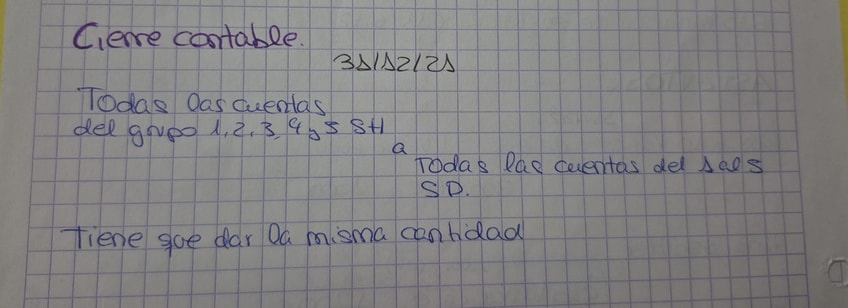 Cierre contable.
31/12/21
Todas las cuentas
del grupo 1, 2, 3, 4 y 5 SH
a
Todas las cuentas del 1 al 5
SD.
Tiene que dar la misma cantidad